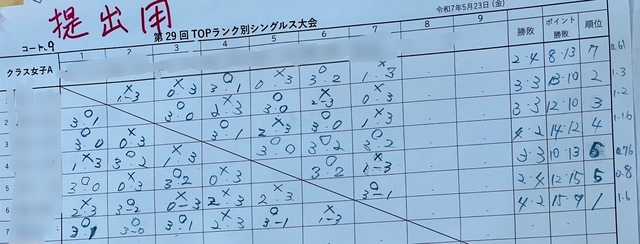 提出用
令和7年5月23日(金)
第29回 TOPランク別シングルス大会
コート、9
クラス女子A 1 2 3 4 5 6 7 8 9 勝敗 ポイント勝敗 順位
× 1-3 × 0.3 ○ 3.1 × 0.3 ○ 3.2 × 1.3 2.4 8.13 7 0.61
○ 3.1 ○ 3.0 × 2.3 ○ 3.0 × 2-3 × 0.3 3.3 13.10 2 1.3
○ 3.0 × 0.3 ○ 3.1 × 2.3 ○ 3.0 × 1.3 3.3 12.10 3 1.2
× 1.3 ○ 3.2 × 1.3 ○ 3.0 ○ 3.2 ○ 3.2 4.2 14.12 4 1.16
○ 3.0 × 0.3 ○ 3.2 × 0.3 ○ 3.2 × 1-3 3.3 10.13 0.76
× 2.3 ○ 3-2 × 0-3 × 2.3 × 2.3 ○ 3-1 2.4 12.15 5 0.8
○ 3.1 ○ 3-0 ○ 3.1 × 2.3 ○ 3-1 × 1-3 4.2 15.9 1 1.6